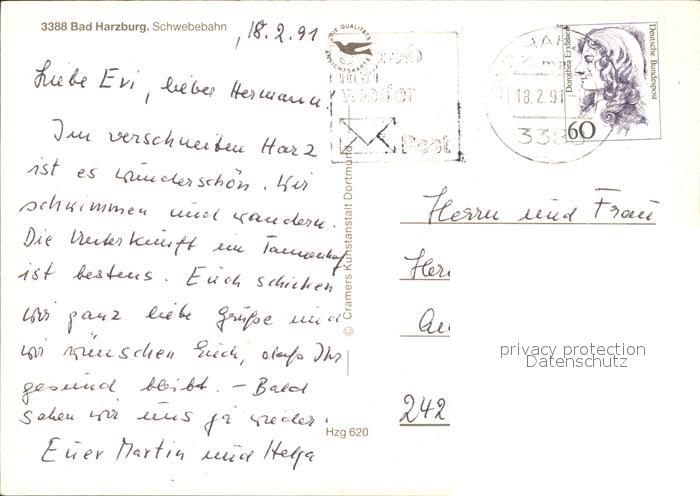 3388 Bad Harzburg. Schwebebahn
, 18.2.91
Liebe Evi, lieber Hermann.
Im verschneiten Harz
ist es wunderschön. Wir
schwimmen und wandern.
Die Unterkunft im Tannenhof
ist bestens. Euch schicken
wir ganz liebe Grüße und
wir wünschen Euch, daß Ihr
gesund bleibt. – Bald
sehen wir uns ja wieder.
Euer Martin und Helga
Hzg 620
© Cramers Kunstanstalt Dortmund
DIE QUALITÄTS
ANSICHTSKARTE
mal
wieder
Post
18.2.91
338
Dorothea Erxleben
Deutsche Bundespost
60
Herrn und Frau
Her
242
privacy protection
Datenschutz